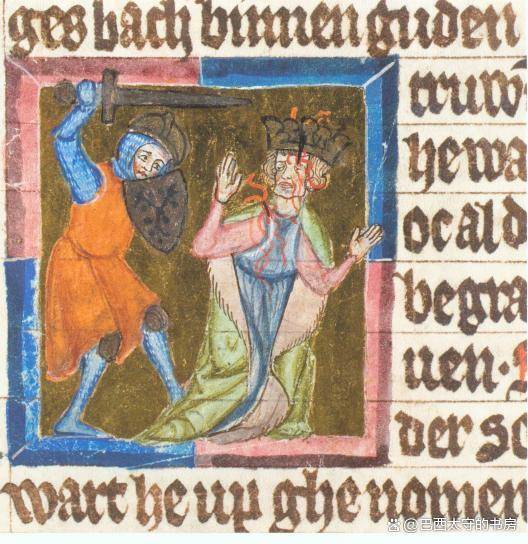 ges bach binnen guden
truw
hewa
ocald
begra
uen·
der sc
wart he up ghenomen
@巴西太守的书房